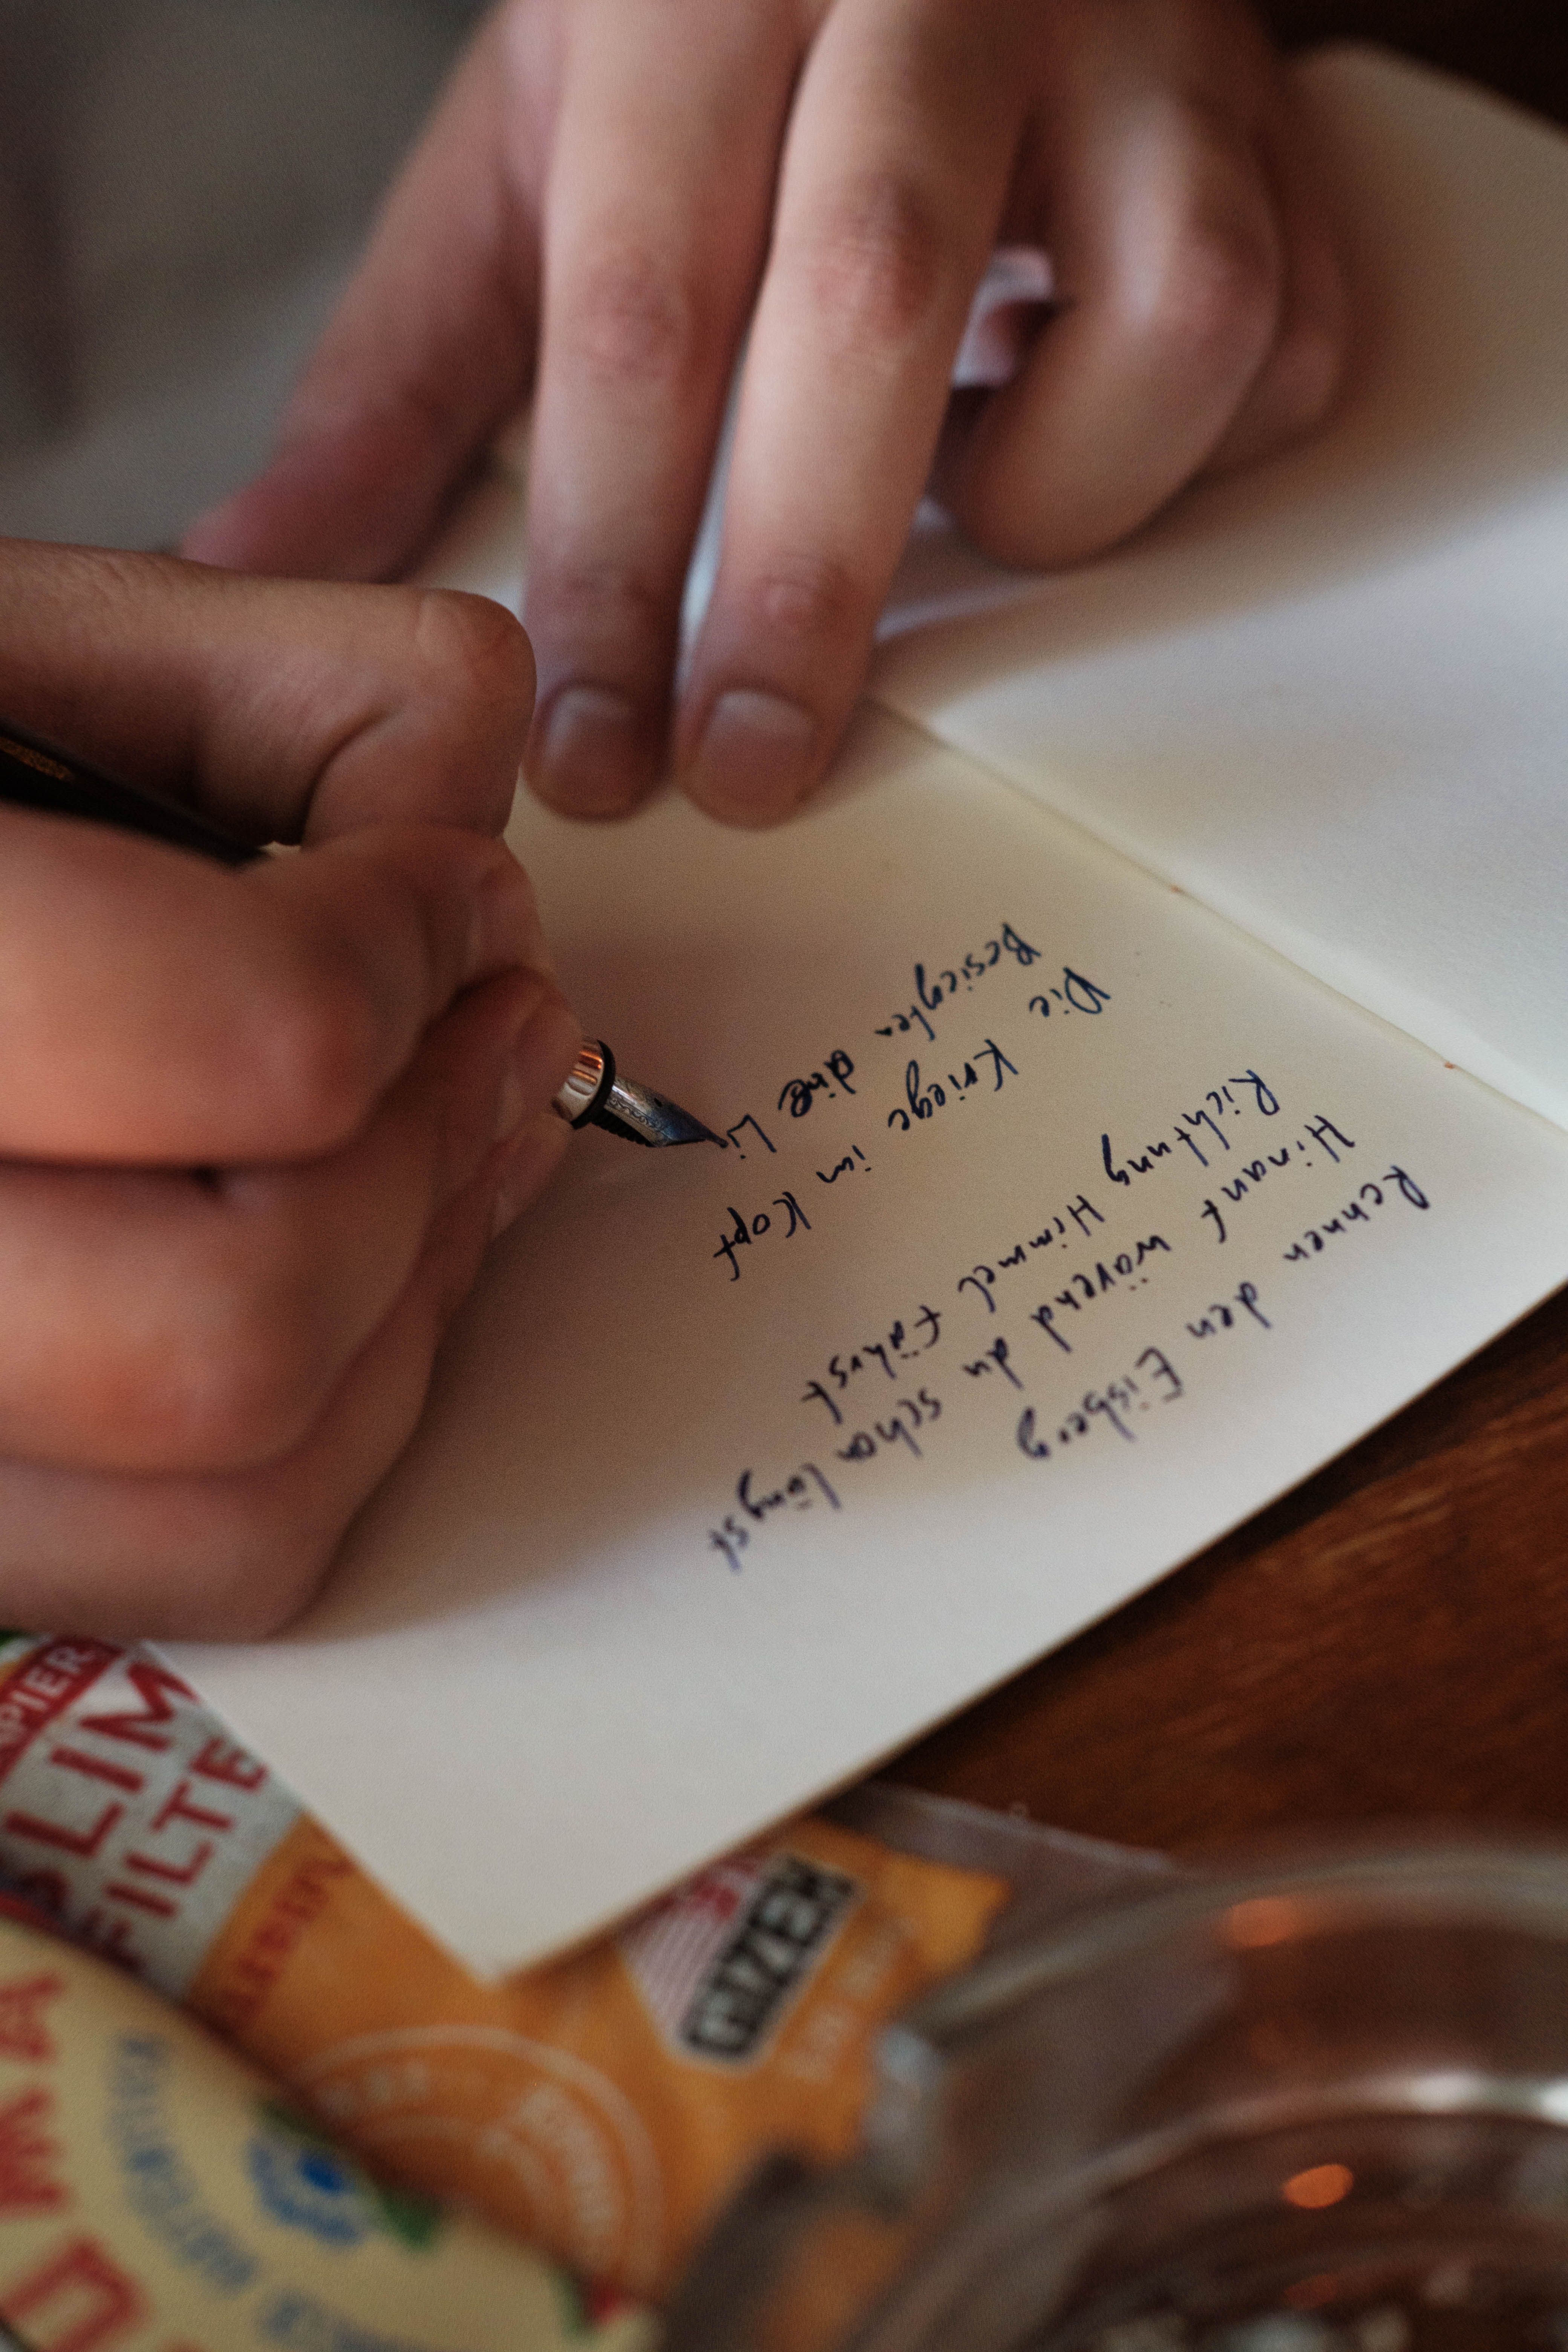 Rennen den Eisberg
Hinauf wärend du schon längst
Richtung Himmel fährst
Die Kriege im Kopf
Besiegten dine Li
SLIM
FILTE
GIZEH